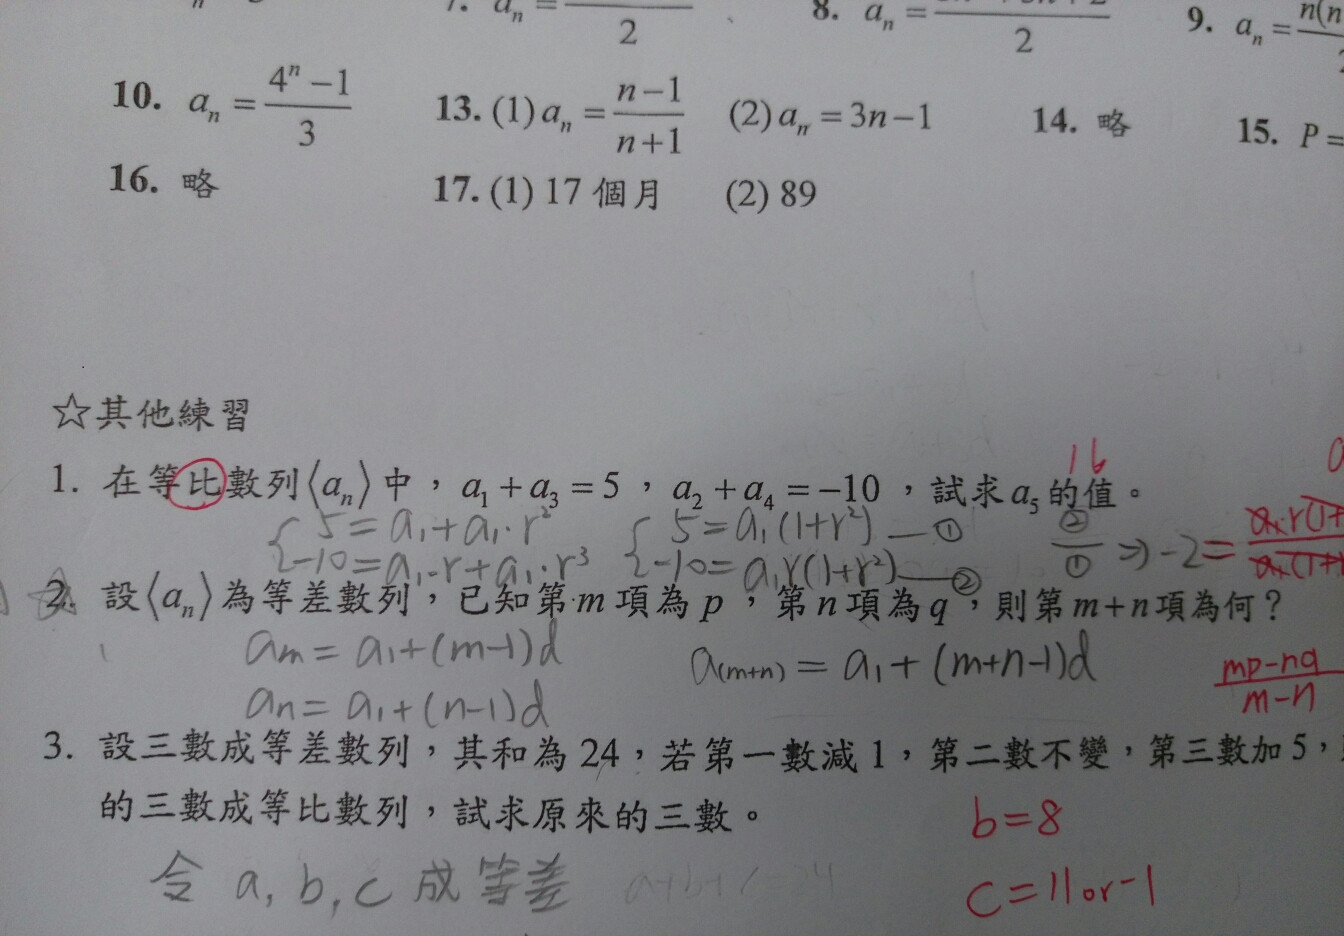 7. aₙ = ―/2 8. aₙ = ―/2 9. aₙ = n(n
10. aₙ = (4ⁿ−1)/3 13. (1) aₙ = (n−1)/(n+1) (2) aₙ = 3n−1 14. 略 15. P =
16. 略 17. (1) 17 個月 (2) 89
☆其他練習
16
1. 在等比數列⟨aₙ⟩中，a₁+a₃=5，a₂+a₄=−10，試求a₅的值。
{ 5=a₁+a₁·r² { 5=a₁(1+r²)—① ②/① ⇒ -2=
-10=a₁·r+a₁·r³ -10=a₁r(1+r²)—②
2. 設⟨aₙ⟩為等差數列，已知第m項為p，第n項為q，則第m+n項為何？
am = a₁+(m-1)d a(m+n) = a₁+(m+n-1)d (mp-nq)/(m-n)
an = a₁+(n-1)d
3. 設三數成等差數列，其和為24，若第一數減1，第二數不變，第三數加5，
的三數成等比數列，試求原來的三數。
b=8
令 a, b, c 成等差
c=11 or -1